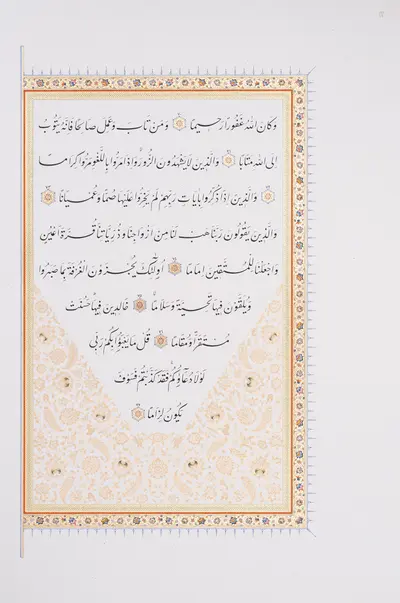 وَكَانَ اللّٰهُ غَفُورًا رَحِيمًا وَمَنْ تَابَ وَعَمِلَ صَالِحًا فَاِنَّهُ يَتُوبُ
اِلَى اللّٰهِ مَتَابًا وَالَّذِينَ لَا يَشْهَدُونَ الزُّورَ وَاِذَا مَرُّوا بِاللَّغْوِ مَرُّوا كِرَامًا
وَالَّذِينَ اِذَا ذُكِّرُوا بِاٰيَاتِ رَبِّهِمْ لَمْ يَخِرُّوا عَلَيْهَا صُمًّا وَعُمْيَانًا
وَالَّذِينَ يَقُولُونَ رَبَّنَا هَبْ لَنَا مِنْ اَزْوَاجِنَا وَذُرِّيَّاتِنَا قُرَّةَ اَعْيُنٍ
وَاجْعَلْنَا لِلْمُتَّقِينَ اِمَامًا اُولٰئِكَ يُجْزَوْنَ الْغُرْفَةَ بِمَا صَبَرُوا
وَيُلَقَّوْنَ فِيهَا تَحِيَّةً وَسَلَامًا خَالِدِينَ فِيهَا حَسُنَتْ
مُسْتَقَرًّا وَمُقَامًا قُلْ مَا يَعْبَؤُا بِكُمْ رَبِّي
لَوْلَا دُعَاؤُكُمْ فَقَدْ كَذَّبْتُمْ فَسَوْفَ
يَكُونُ لِزَامًا